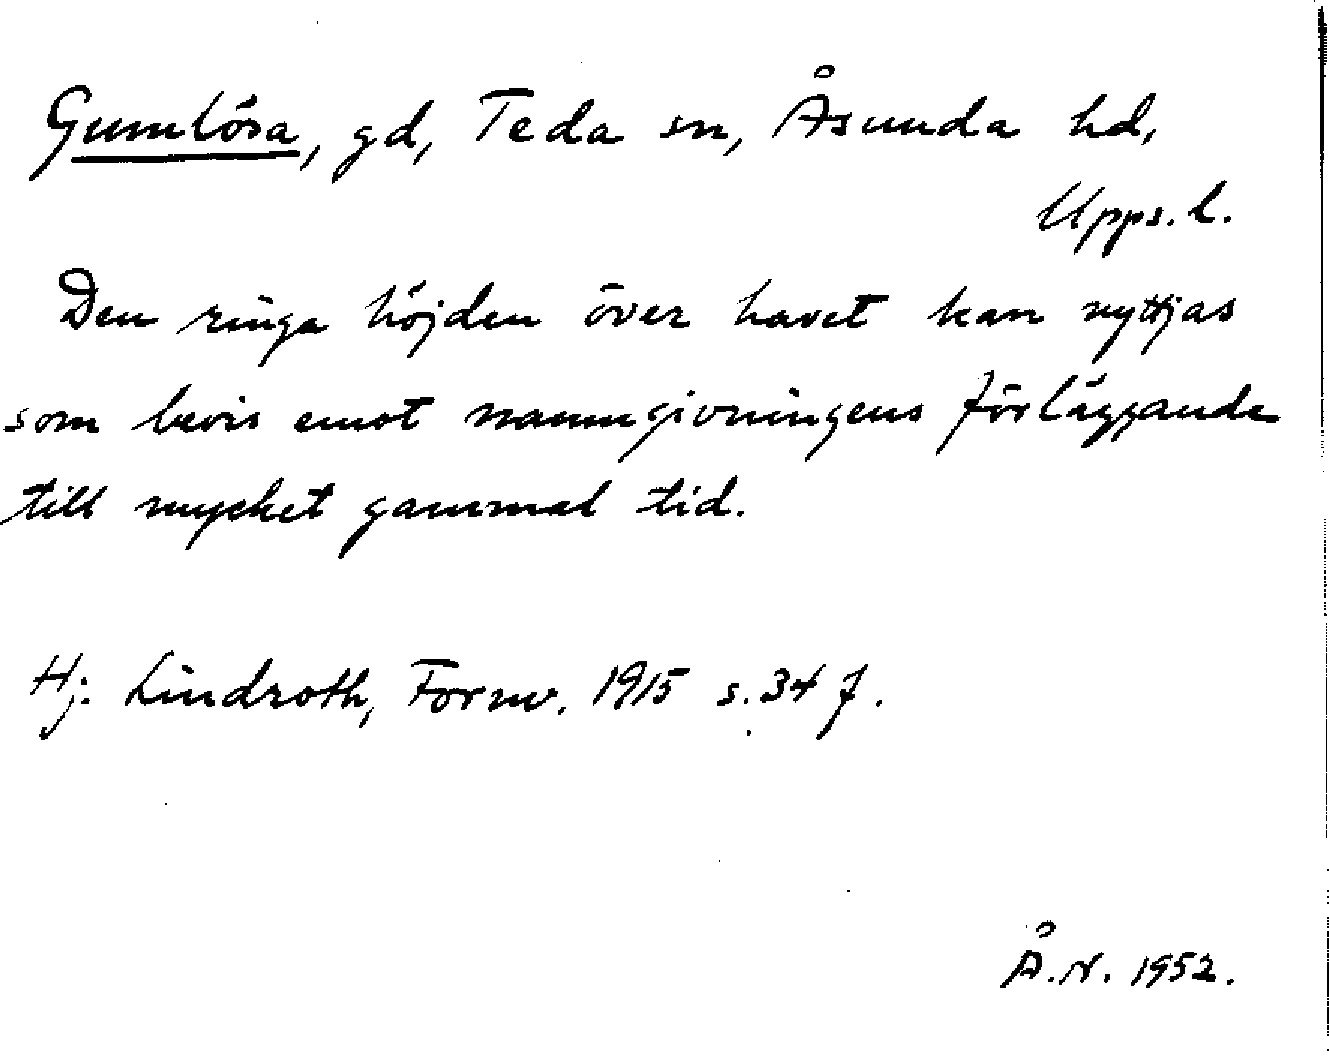 Gumlösa, gd, Teda sn, Åsunda hd,
Upps. l.
Den ringa höjden över havet kan nyttjas
som bevis emot namngivningens förläggande
till mycket gammal tid.
Hj. Lindroth, Fornv. 1915 s. 34 f.
Å. N. 1952.